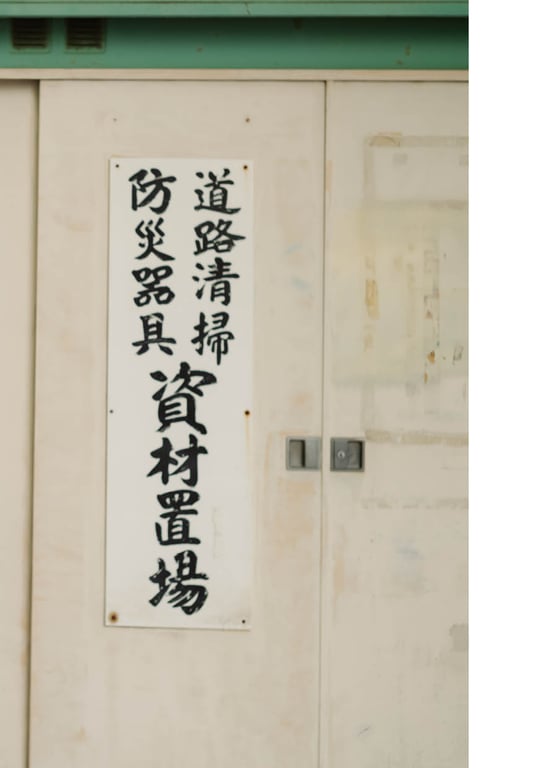 道路清掃
防災器具
資材置場